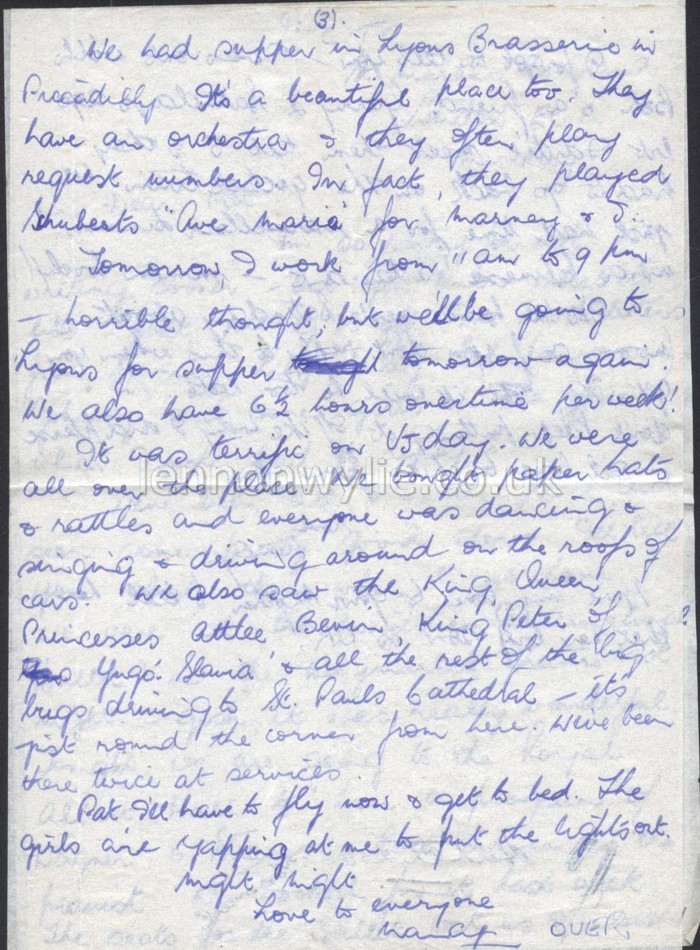 (3).
We had supper in Lyons Brasserie in
Piccadilly. It's a beautiful place too. They
have an orchestra & they often play
request numbers. In fact, they played
Shuberts "Ave Maria" for Marney & I.
Tomorrow, I work from 11 am to 9 pm
– horrible thought, but we'll be going to
Lyons for supper tomorrow again.
We also have 6½ hours overtime per week!
It was terrific on VJ day. We were
all over the place. We bought paper hats
& rattles and everyone was dancing &
singing & driving around on the roofs of
cars. We also saw the King, Queen,
Princesses Attlee Bevin, King Peter of
Yugo Slavia & all the rest of the big
bugs driving to St. Pauls Cathedral – it's
just round the corner from here. We've been
there twice at services.
Pat I'll have to fly now & get to bed. The
girls are yapping at me to put the lights out.
Night night
Love to everyone
OVER.
lennonwylie.co.uk